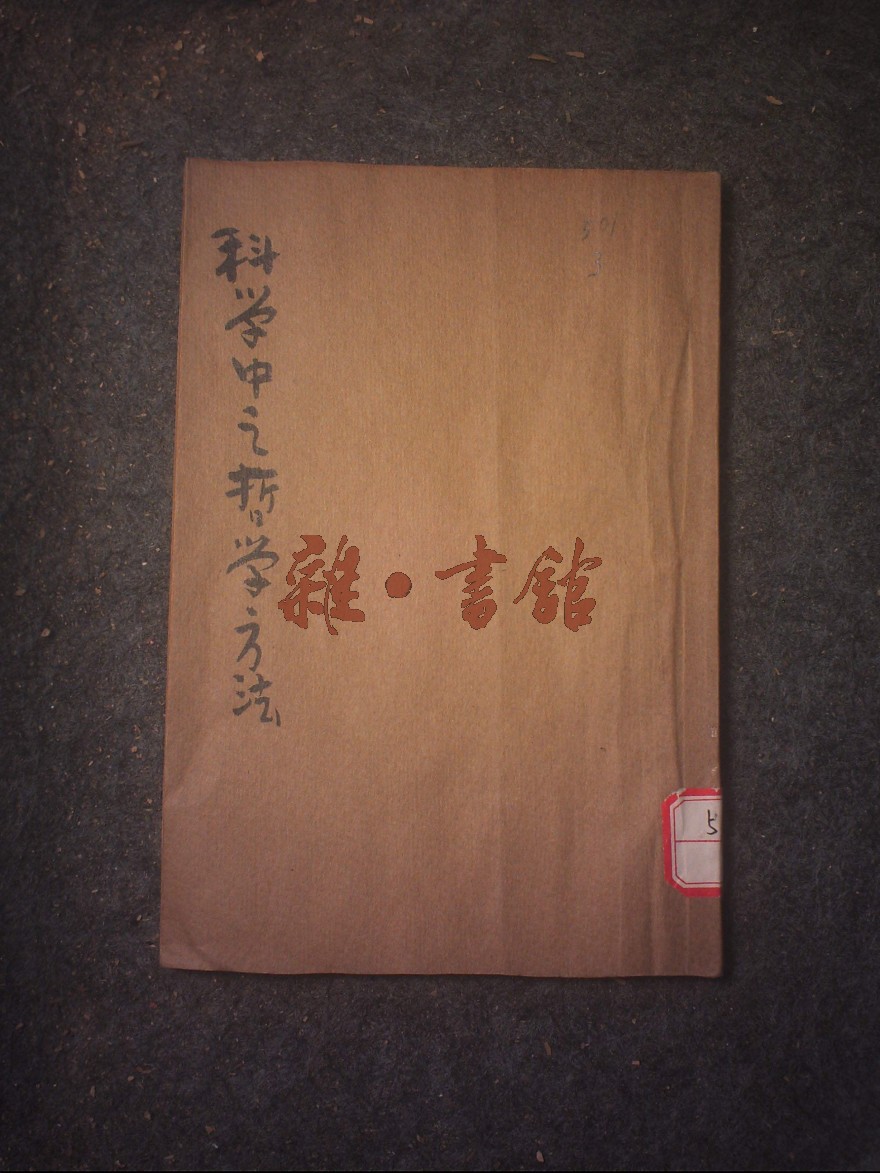 科学中之哲学方法
雜·書館
501
5